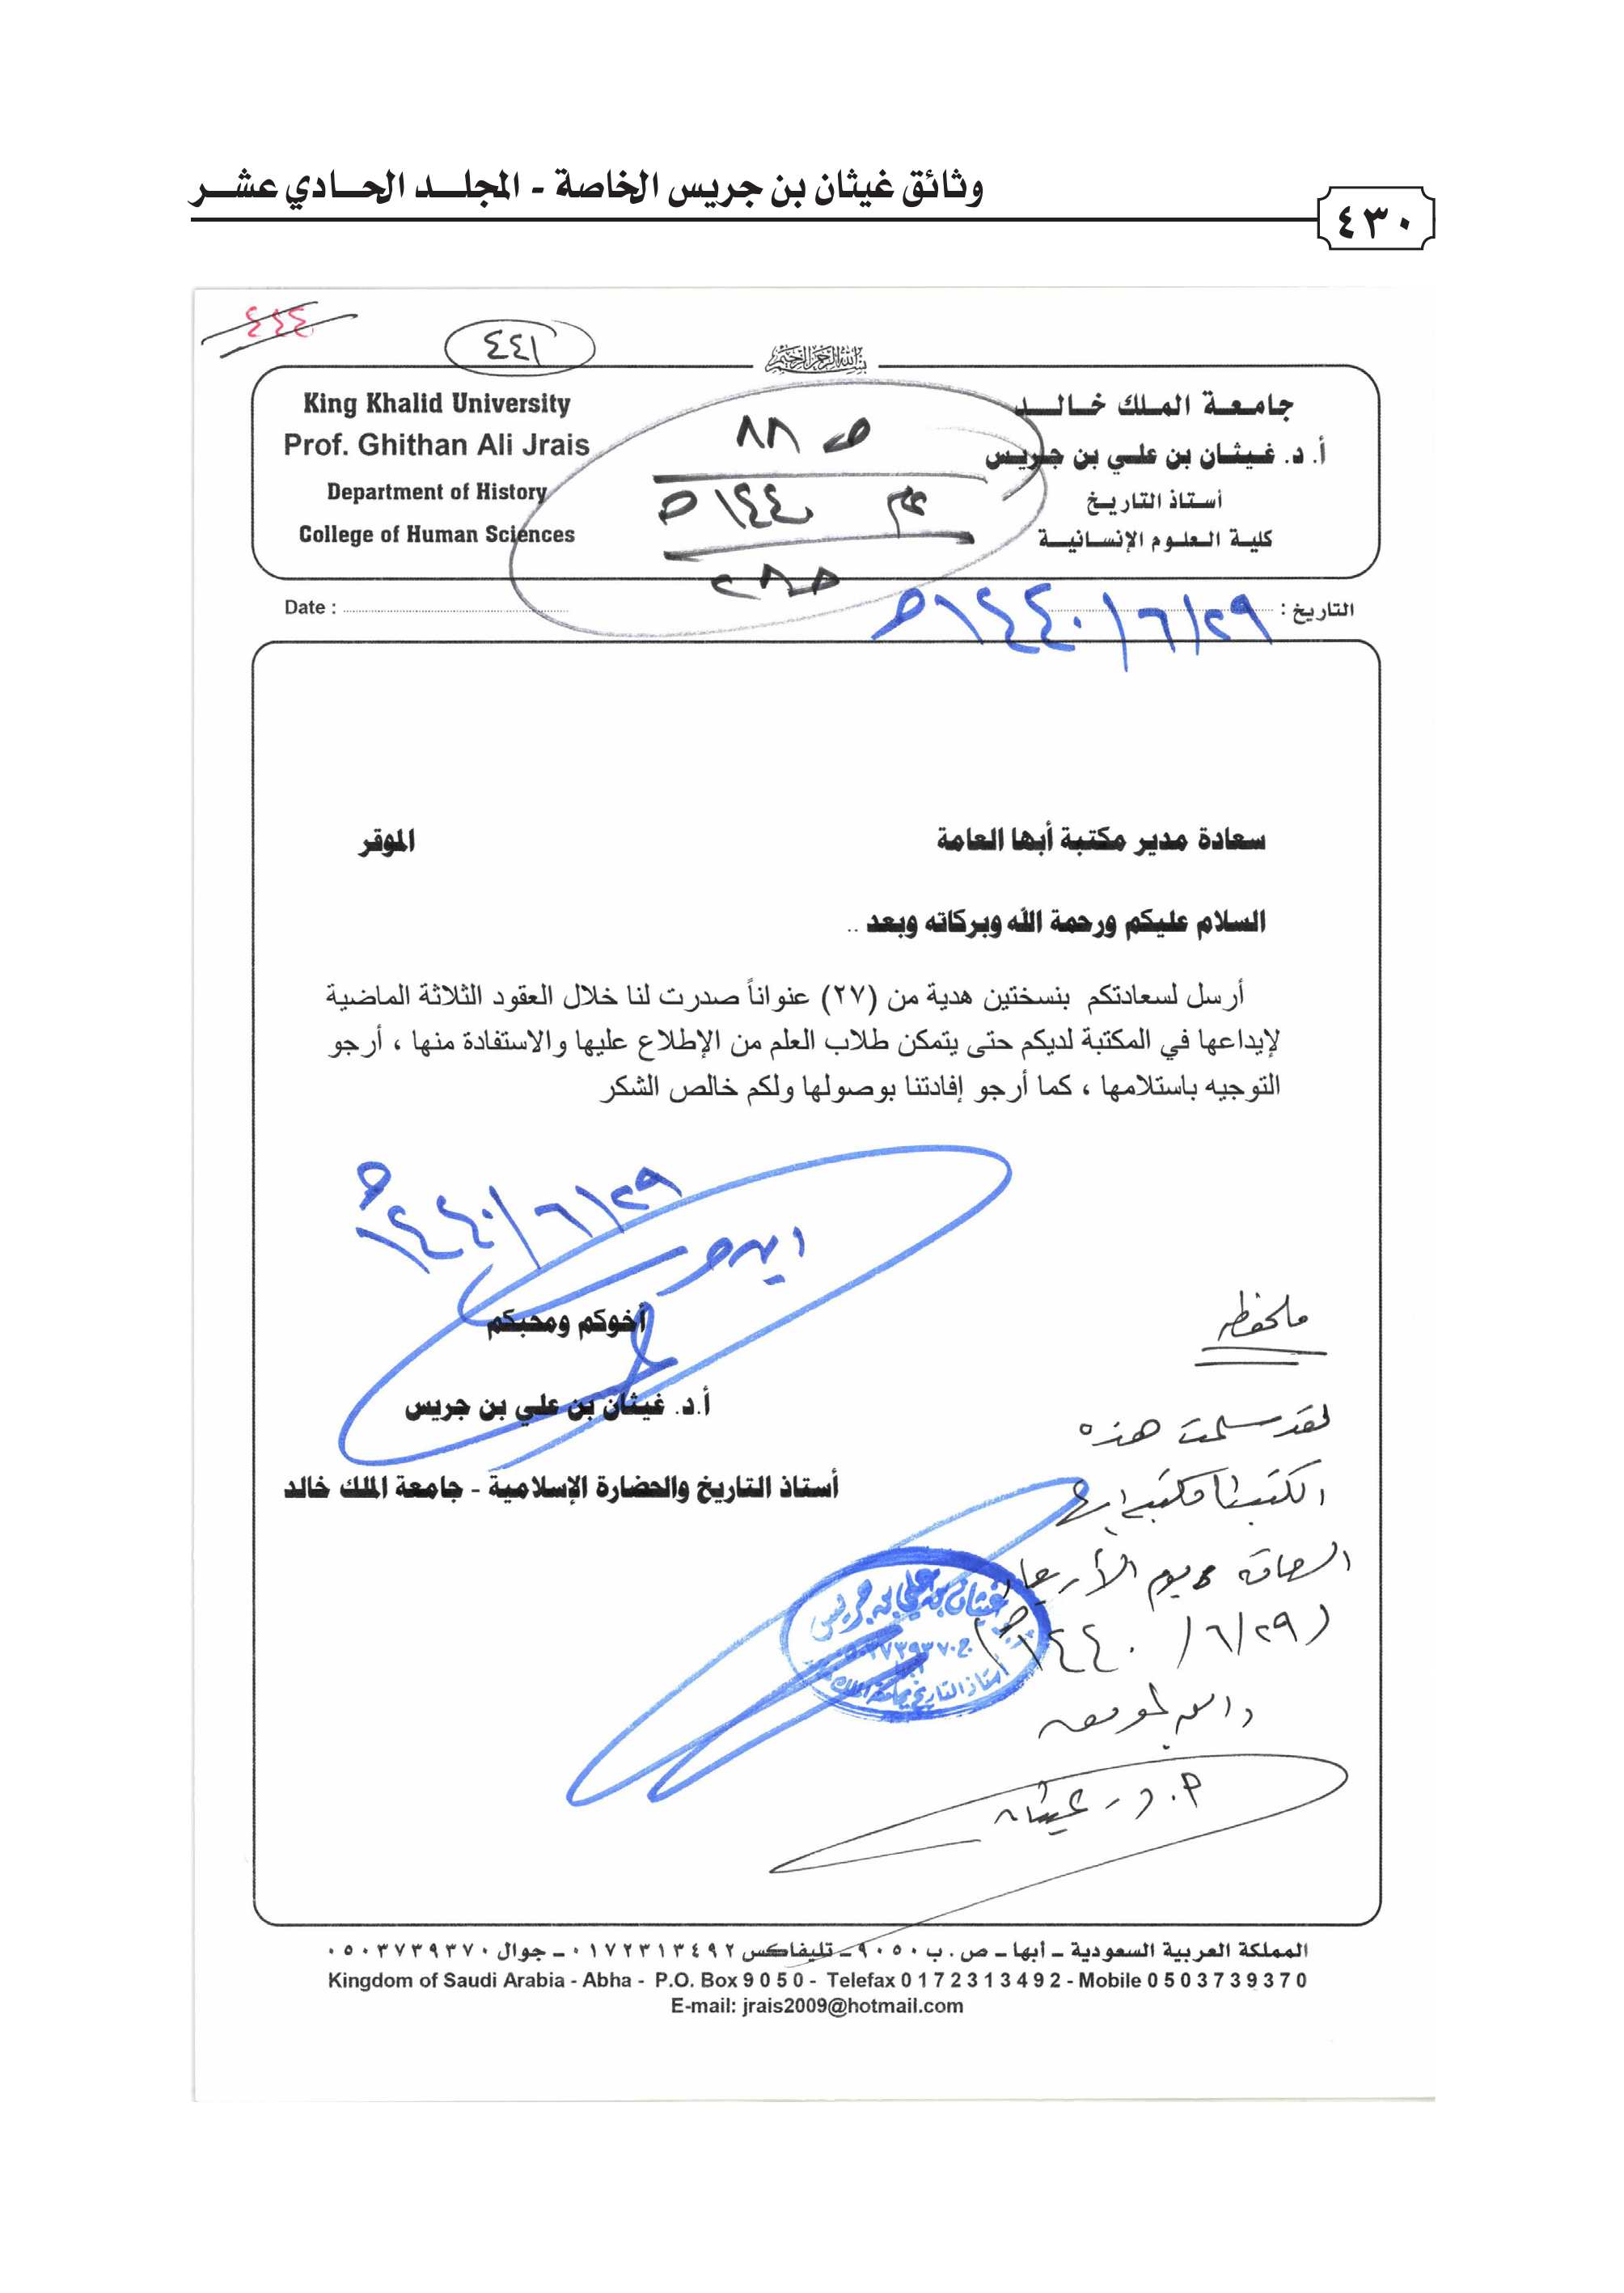 وثائق غيثان بن جريس الخاصة - المجلد الحادي عشر
٤٣٠
٤٤٤
٤٤١
بسم الله الرحمن الرحيم
جامعة الملك خالد
أ. د. غيثان بن علي بن جريس
أستاذ التاريخ
كلية العلوم الإنسانية
King Khalid University
Prof. Ghithan Ali Jrais
Department of History
College of Human Sciences
ص ٨٨
التاريخ : ٢٩/٦/١٤٤٠هـ
Date :
سعادة مدير مكتبة أبها العامة الموقر
السلام عليكم ورحمة الله وبركاته وبعد ..
أرسل لسعادتكم بنسختين هدية من (٢٧) عنواناً صدرت لنا خلال العقود الثلاثة الماضية
لإيداعها في المكتبة لديكم حتى يتمكن طلاب العلم من الإطلاع عليها والاستفادة منها ، أرجو
التوجيه باستلامها ، كما أرجو إفادتنا بوصولها ولكم خالص الشكر
٢٩/٦/١٤٤٠هـ
أخوكم ومحبكم
أ.د. غيثان بن علي بن جريس
أستاذ التاريخ والحضارة الإسلامية - جامعة الملك خالد
ملحوظة
لقد سلمت هذه
الكتب مكتبة أبها
العامة يوم الأربعاء
(٢٩/٦/١٤٤٠هـ)
والله الموفق
أ.د. غيثان
أ.د. غيثان بن علي بن جريس
ج ٠٥٠٣٧٣٩٣٧٠
أستاذ التاريخ بجامعة الملك خالد
المملكة العربية السعودية – أبها – ص . ب ٩٠٥٠ – تليفاكس ٠١٧٢٣١٣٤٩٢ – جوال ٠٥٠٣٧٣٩٣٧٠
Kingdom of Saudi Arabia - Abha - P.O. Box 9 0 5 0 - Telefax 0 1 7 2 3 1 3 4 9 2 - Mobile 0 5 0 3 7 3 9 3 7 0
E-mail: jrais2009@hotmail.com